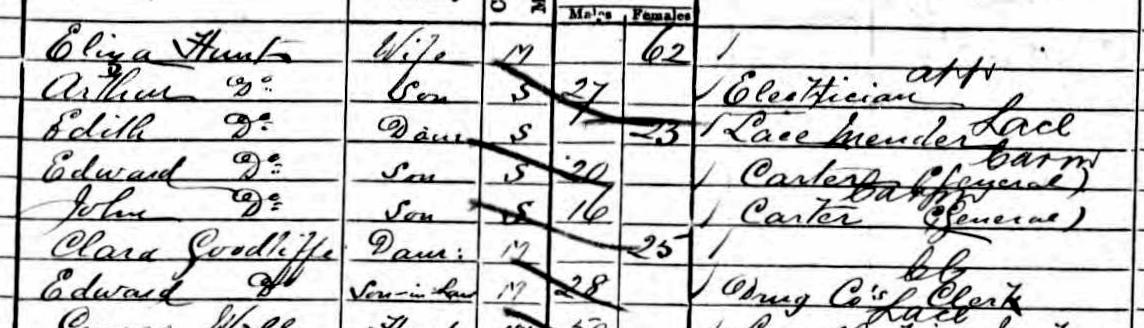 Males Females
Eliza Hunt Wife M 62
Arthur Do. Son S 27 Electrician app
Edith Do. Daur S 23 Lace Mender Lace
Edward Do. Son S 20 Carter (General) Carm
John Do. Son S 16 Carter (General) Carm
Clara Goodliffe Daur: M 25
Edward Do Son-in-Law M 28 Drug Co's Clerk
Lace